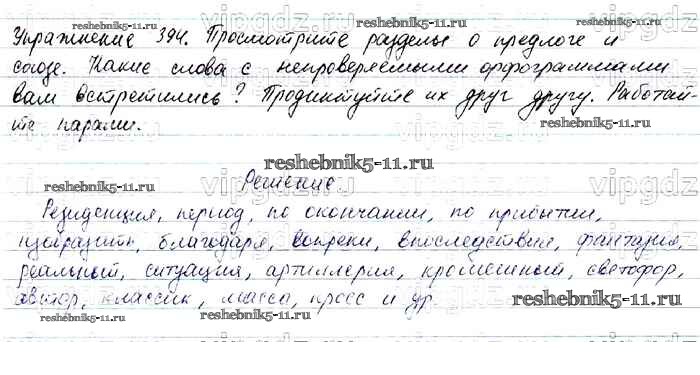 reshebnik5-11.ru reshebnik5-11.ru
Упражнение 394. Просмотрите разделы о предлоге и
союзе. Какие слова с непроверяемыми орфограммами
вам встретились? Продиктуйте их друг другу. Работай-
те парами.
reshebnik5-11.ru reshebnik5-11.ru
reshebnik5-11.ru
vipgdz vipgdz vipgdz
Решение
Резиденция, период, по окончании, по прибытии,
изобразить, благодаря, вопреки, впоследствии, фантазия,
реальный, ситуация, артиллерия, крошечный, светофор,
автор, классик, масса, кросс и др.
reshebnik5-11.ru reshebnik5-11.ru reshebnik5-11.ru